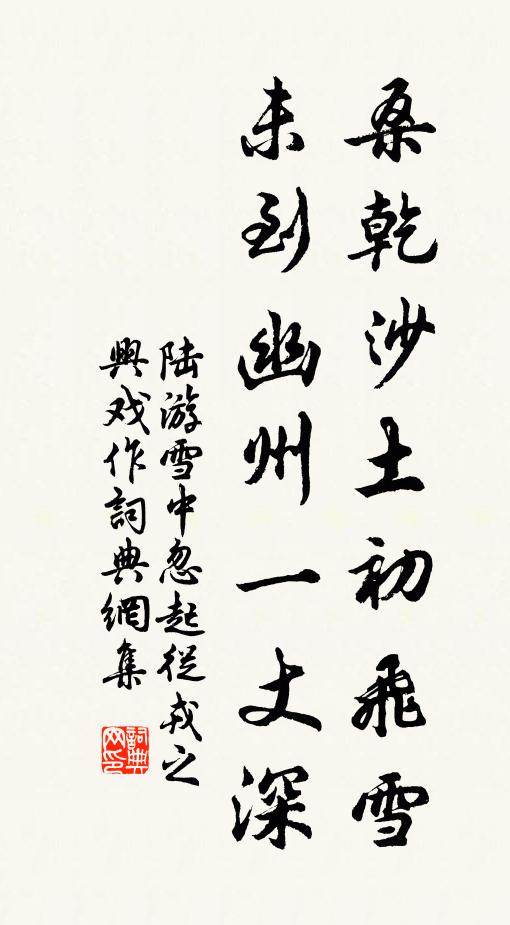 桑乾沙土初飛雪
未到幽州一丈深
陆游雪中忽起從戎之
興戏作詞典網集
詞典
网印